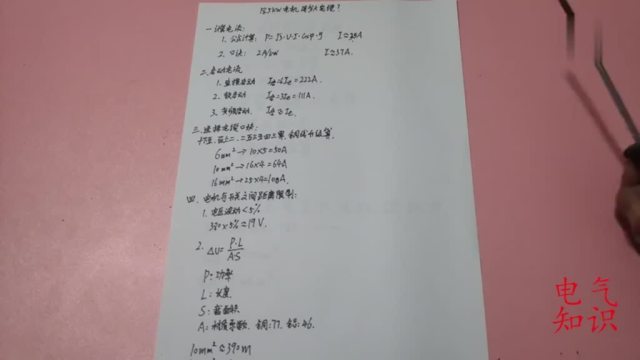 18.5kW电机 选多大电缆?
一.计算电流:
1. 公式计算: P=√3·U·I·Cosφ·η I≈38A
2. 口诀: 2A/kW I≈37A
二.启动电流
1. 直接启动A I启=6Ie=222A.
2. 软启动 I启=3Ie=111A.
3. 变频启动. I启≈Ie.
三.选择电缆口诀:
6mm²→10×5=50A
10mm²→16×4=64A
16mm²→25×4=100A.
四.电机与开关之间距离限制:
1. 电压波动<5%
380×5%≈19V.
2. ΔU=P·L/A·S
P:功率
L:长度
S:截面积
A:材质系数. 铜:77. 铝:46.
10mm²≈390m
电气
知识